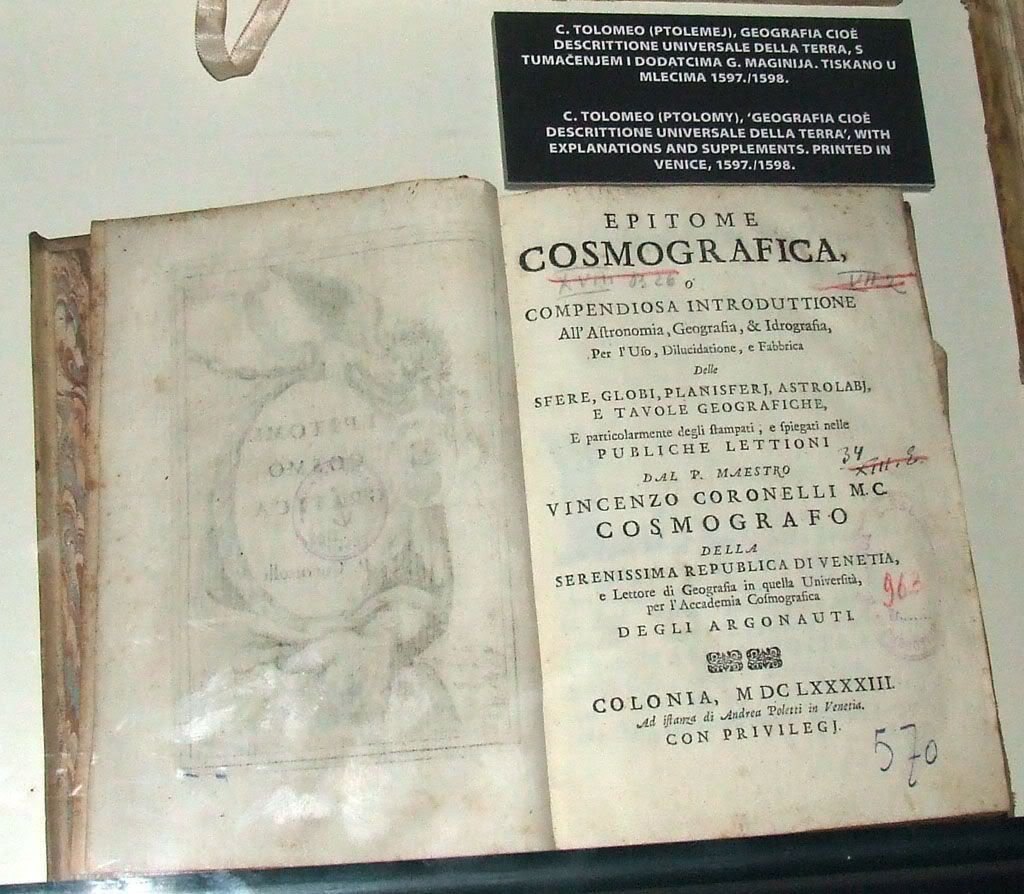 C. TOLOMEO (PTOLEMEJ), GEOGRAFIA CIOÈ
DESCRITTIONE UNIVERSALE DELLA TERRA, S
TUMAČENJEM I DODATCIMA G. MAGINIJA. TISKANO U
MLECIMA 1597./1598.
C. TOLOMEO (PTOLOMY), 'GEOGRAFIA CIOÈ
DESCRITTIONE UNIVERSALE DELLA TERRA', WITH
EXPLANATIONS AND SUPPLEMENTS. PRINTED IN
VENICE, 1597./1598.
EPITOME
COSMOGRAFICA,
O
COMPENDIOSA INTRODUTTIONE
All' Aſtronomia, Geografia, & Idrografia,
Per l'Uſo, Dilucidatione, e Fabbrica
Delle
SFERE, GLOBI, PLANISFERJ, ASTROLABJ,
E TAVOLE GEOGRAFICHE,
E particolarmente degli ſtampati, e ſpiegati nelle
PUBLICHE LETTIONI
34
DAL P. MAESTRO
VINCENZO CORONELLI M.C.
COSMOGRAFO
DELLA
SERENISSIMA REPUBLICA DI VENETIA,
e Lettore di Geografia in quella Univerſità,
per l'Accademia Coſmografica
DEGLI ARGONAUTI.
COLONIA, MDCLXXXXIII.
Ad iſtanza di Andrea Poletti in Venetia.
CON PRIVILEGJ.
570